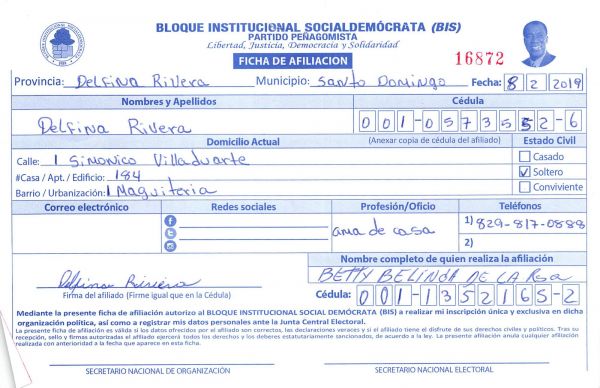 BLOQUE INSTITUCIONAL SOCIALDEMÓCRATA (BIS)
PARTIDO PEÑAGOMISTA
Libertad, Justicia, Democracia y Solidaridad
FICHA DE AFILIACION 16872
Provincia: Delfina Rivera Municipio: Santo Domingo Fecha: 8 2 2019
Nombres y Apellidos Cédula
Delfina Rivera 001-0573552-6
Domicilio Actual (Anexar copia de cédula del afiliado) Estado Civil
Calle: 1 Simonico Villaduarte Casado
#Casa / Apt. / Edificio: 184 Soltero
Barrio / Urbanización: 1 Maguiteria Conviviente
Correo electrónico Redes sociales Profesión/Oficio Teléfonos
ama de casa 1) 829-817-0888
2)
Nombre completo de quien realiza la afiliación
Delfina Riviera BETTY BELINDA DE LA Rosa
Firma del afiliado (Firme igual que en la Cédula) Cédula: 001-1352165-2
Mediante la presente ficha de afiliación autorizo al BLOQUE INSTITUCIONAL SOCIAL DEMÓCRATA (BIS) a realizar mi inscripción única y exclusiva en dicha
organización política, así como a registrar mis datos personales ante la Junta Central Electoral.
La presente ficha de afiliación es válida si los datos ofrecidos por el afiliado son correctos, las declaraciones veraces y si el afiliado tiene el disfrute de sus derechos civiles y políticos. Tras su
recepción, sello y firmas autorizadas el afiliado ejercerá todos los derechos y los deberes estatutariamente sancionados, de acuerdo a la ley. La presente afiliación anula cualquier afiliación
realizada con anterioridad a la fecha que aparece en esta ficha.
SECRETARIO NACIONAL DE ORGANIZACIÓN SECRETARIO NACIONAL ELECTORAL